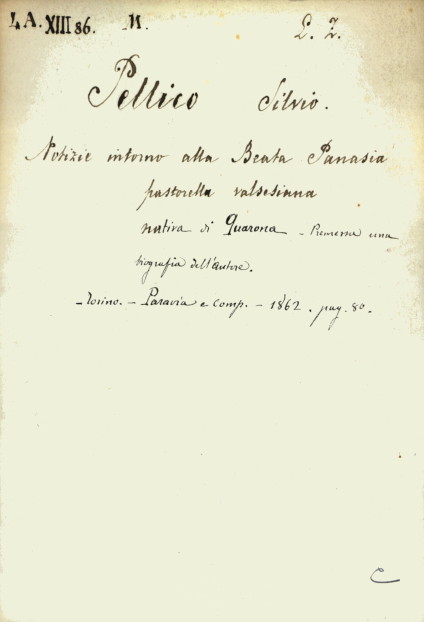 4A. XIII 86. M. L. Z.
Pellico Silvio.
Notizie intorno alla Beata Panasia
pastorella valsesiana
nativa di Quarona - Premessa una
biografia dell'autore.
- Torino. - Paravia e comp. - 1862. pag. 80.
C